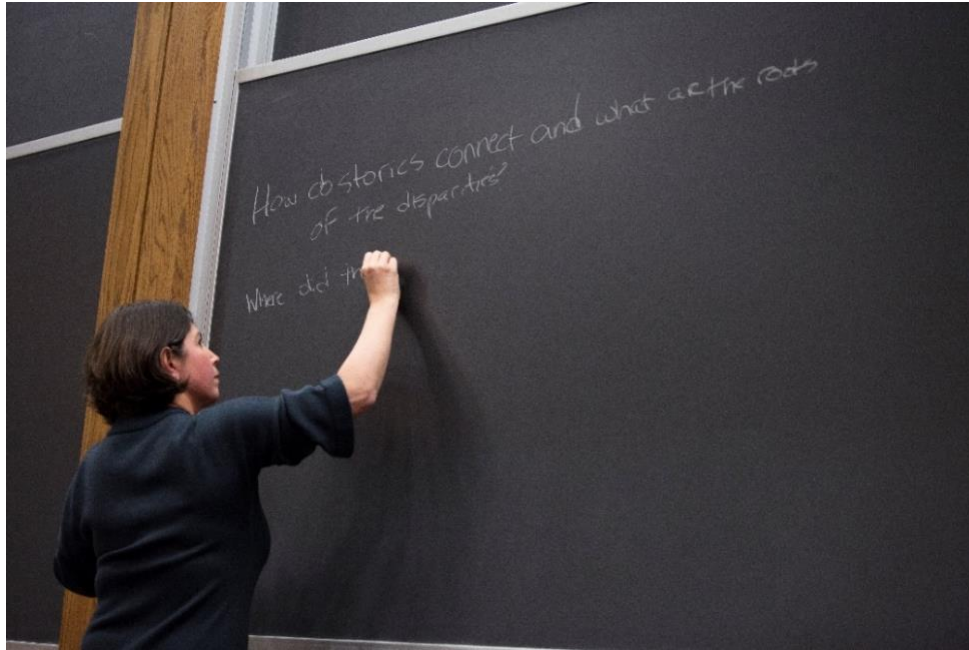 How do stories connect and what are the roots
of the disparities?
Where did the